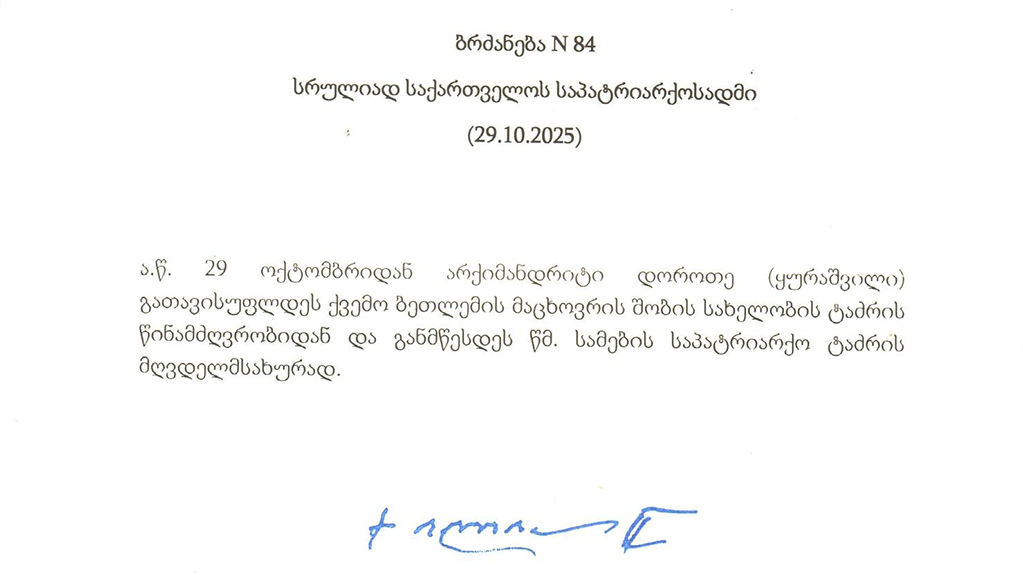 ბრძანება N 84
სრულიად საქართველოს საპატრიარქოსადმი
(29.10.2025)
ა.წ. 29 ოქტომბრიდან არქიმანდრიტი დოროთე (ყურაშვილი)
გათავისუფლდეს ქვემო ბეთლემის მაცხოვრის შობის სახელობის ტაძრის
წინამძღვრობიდან და განმწესდეს წმ. სამების საპატრიარქო ტაძრის
მღვდელმსახურად.